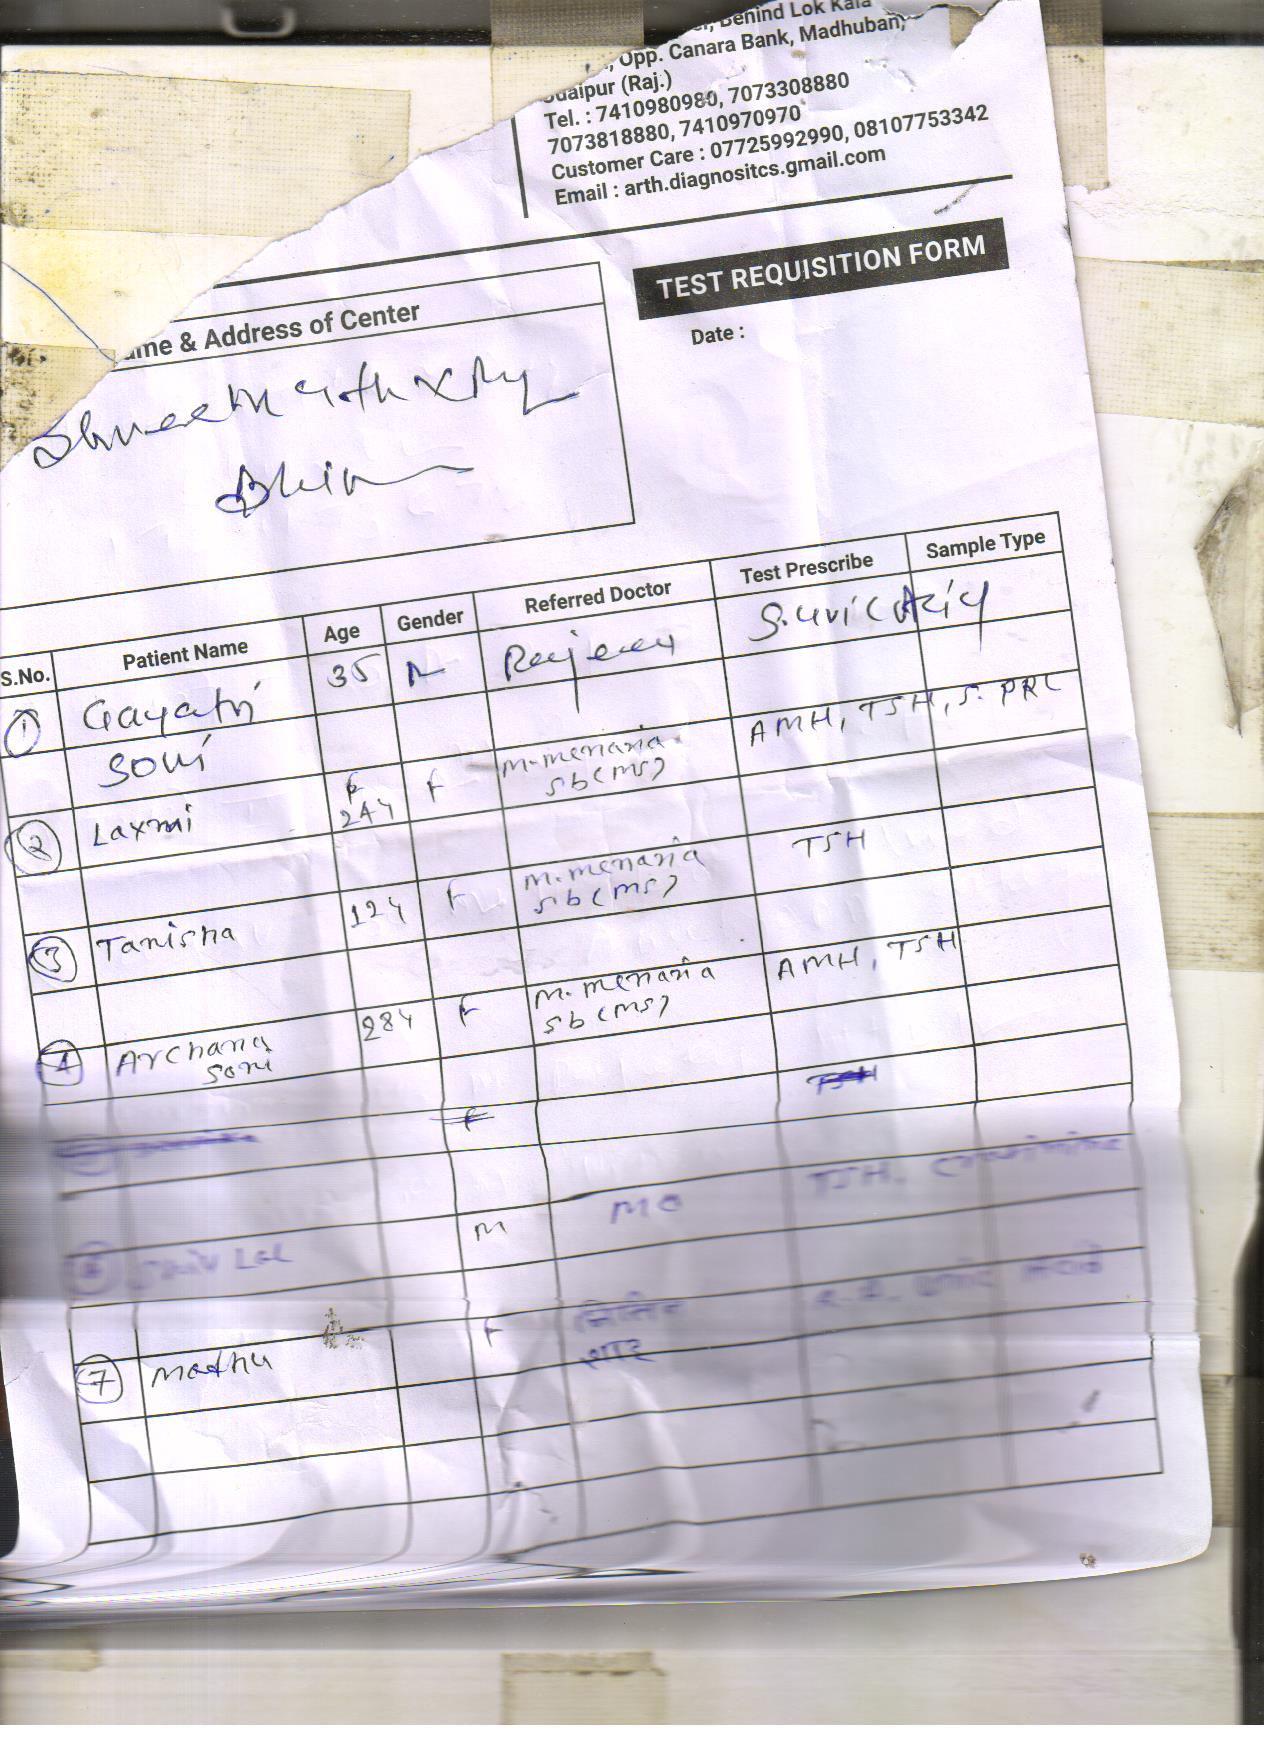 Behind Lok Kala
Opp. Canara Bank, Madhuban,
Udaipur (Raj.)
Tel. : 7410980980, 7073308880
7073818880, 7410970970
Customer Care : 07725992990, 08107753342
Email : arth.diagnositcs.gmail.com
TEST REQUISITION FORM
Name & Address of Center
Date :
S.No. Patient Name Age Gender Referred Doctor Test Prescribe Sample Type
1 Gayatri 35 Rajeev S.uric Acid
Soni
2 Laxmi F 24y F M.menaria AMH, TSH, S. PRL
sb (ms)
3 Tanisha 12y F M.menaria TSH
sb (ms)
4 Archana 28y F M.menaria AMH, TSH
Soni sb (ms)
F TSH
Shiv Lal M MO TSH, Creatinine
7 Madhu F